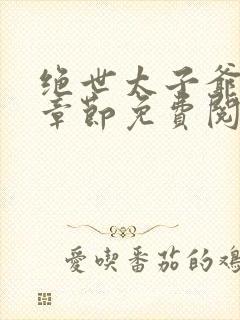 绝世太子爺
章節免費閱
愛喫番茄的鴻